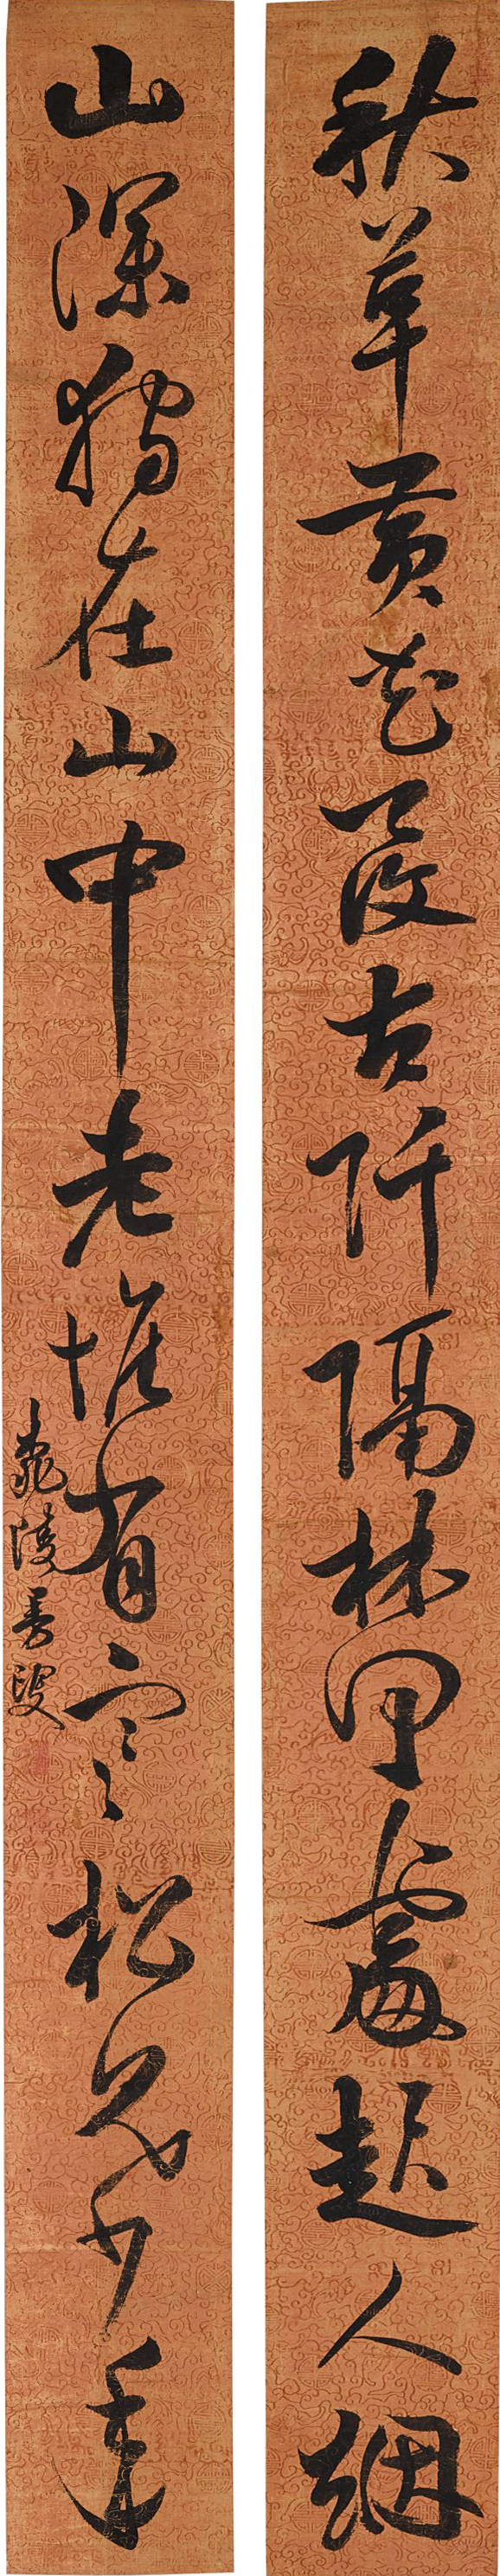 秋草黄花覆古阡隔林何處起人烟
山深獨在山中老惟有寒松見少年
陵香叟